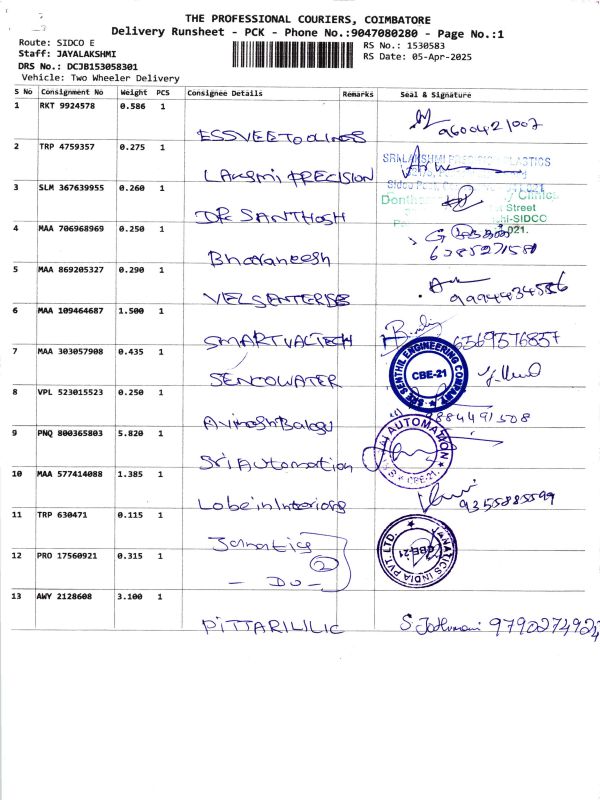 THE PROFESSIONAL COURIERS, COIMBATORE
Delivery Runsheet - PCK - Phone No.:9047080280 - Page No.:1
Route: SIDCO E
RS No.: 1530583
Staff: JAYALAKSHMI
RS Date: 05-Apr-2025
DRS No.: DCJB153058301
Vehicle: Two Wheeler Delivery
S No Consignment No Weight PCS Consignee Details Remarks Seal & Signature
1 RKT 9924578 0.586 1
ESSVEE Toolings 9600421007
2 TRP 4759357 0.275 1
SRI LAKSHMI PRECISION PLASTICS
LAKSHMI PRECISION
3 SLM 367639955 0.260 1
DR SANTHOSH
Street
SIDCO
4 MAA 706968969 0.250 1
021.
Bhavaneesh
5 MAA 869205327 0.290 1
VELS ENTERPRISE
6 MAA 109464687 1.500 1
SMARTVALTECH 6369576857
7 MAA 303057908 0.435 1
SRI SENTHIL ENGINEERING COMPANY
CBE-21
SENCOWATER
8 VPL 523015523 0.250 1
AvinashBalagu
9 PNQ 800365803 5.820 1
SRI SAI AUTOMATION
CBE-21.
Sri Automation
10 MAA 577414088 1.385 1
Lobein Interiors 9355885599
11 TRP 630471 0.115 1
Janatics
JANATICS INDIA PVT. LTD.
CBE-21
12 PRO 17560921 0.315 1
2
- DO -
13 AWY 2128608 3.100 1
PITTARILILIC 9790274924